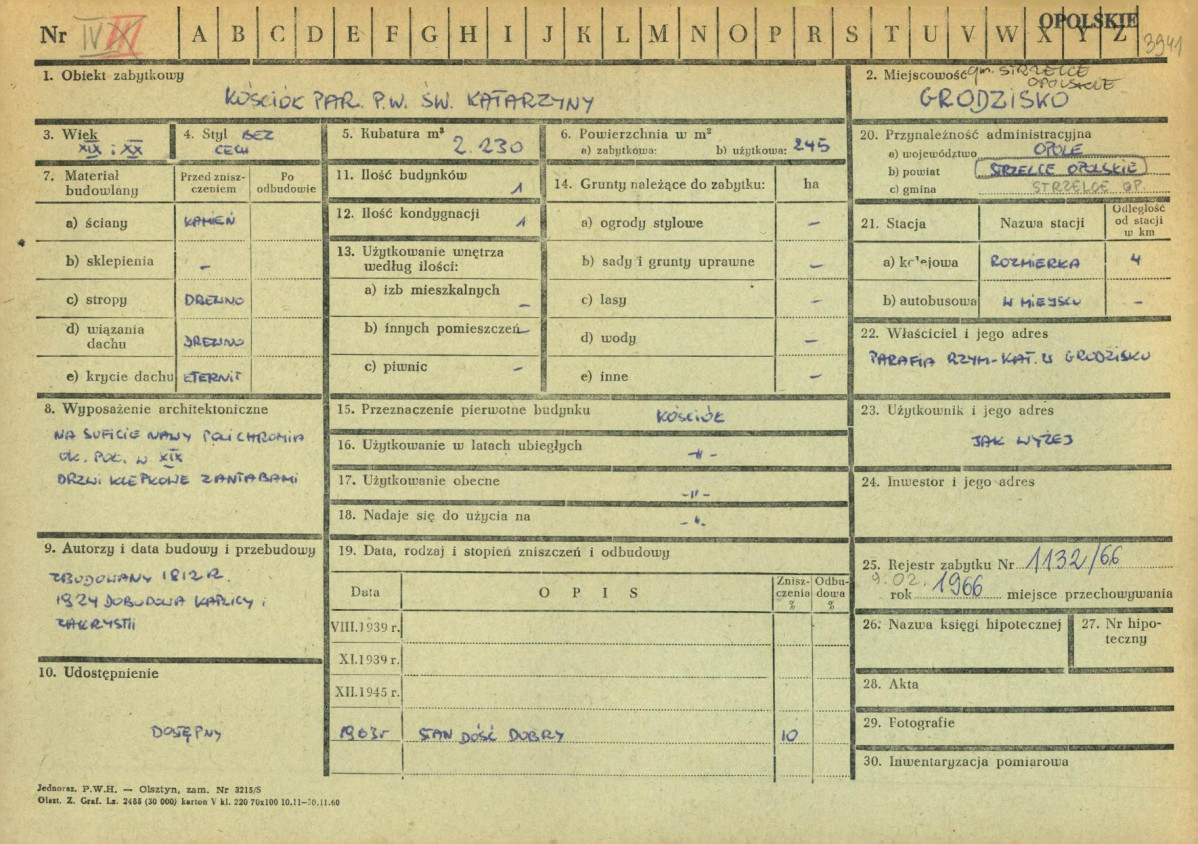 Nr IV III A B C D E F G H I J K L M N O P R S T U V W X Y Z OPOLSKIE 3941
1. Obiekt zabytkowy
KOŚCIÓŁ PAR. P.W. ŚW. KATARZYNY
2. Miejscowość gm. STRZELCE
OPOLSKIE
GRODZISKO
3. Wiek
XIX i XX
4. Styl BEZ
CECH
5. Kubatura m³
2.230
6. Powierzchnia w m²
a) zabytkowa: b) użytkowa: 245
7. Materiał budowlany
Przed zniszczeniem
Po odbudowie
a) ściany KAMIEŃ
b) sklepienia –
c) stropy DREWNO
d) wiązania
dachu DREWNO
e) krycie dachu ETERNIT
8. Wyposażenie architektoniczne
NA SUFICIE NAWY POLICHROMIA
OK. POŁ. W XIX
DRZWI KLEPKOWE Z ANTABAMI
9. Autorzy i data budowy i przebudowy
ZBUDOWANY 1812 R.
1924 DOBUDOWA KAPLICY i
ZAKRYSTII
10. Udostępnienie
DOSTĘPNY
11. Ilość budynków 1
12. Ilość kondygnacji 1
13. Użytkowanie wnętrza
według ilości:
a) izb mieszkalnych –
b) innych pomieszczeń –
c) piwnic –
14. Grunty należące do zabytku: ha
a) ogrody stylowe –
b) sady i grunty uprawne –
c) lasy –
d) wody –
e) inne –
15. Przeznaczenie pierwotne budynku KOŚCIÓŁ
16. Użytkowanie w latach ubiegłych -"-
17. Użytkowanie obecne -"-
18. Nadaje się do użycia na -"-
19. Data, rodzaj i stopień zniszczeń i odbudowy
Data OPIS Zniszczenia % Odbudowa %
VIII.1939 r.
XI.1939 r.
XII.1945 r.
1963 r STAN DOŚĆ DOBRY 10
20. Przynależność administracyjna
a) województwo OPOLE
b) powiat STRZELCE OPOLSKIE
c) gmina STRZELCE OP.
21. Stacja Nazwa stacji Odległość od stacji w km
a) kolejowa ROZMIERKA 4
b) autobusowa W MIEJSCU –
22. Właściciel i jego adres
PARAFIA RZYM-KAT. W GRODZISKU
23. Użytkownik i jego adres
JAK WYŻEJ
24. Inwestor i jego adres
25. Rejestr zabytku Nr 1132/66
9.02. rok 1966 miejsce przechowywania
26. Nazwa księgi hipotecznej
27. Nr hipoteczny
28. Akta
29. Fotografie
30. Inwentaryzacja pomiarowa
Jednoraz. P.W.H. — Olsztyn, zam. Nr 3215/S
Olszt. Z. Graf. Lz. 2485 (30 000) karton V kl. 220 70x100 10.11—30.11.60